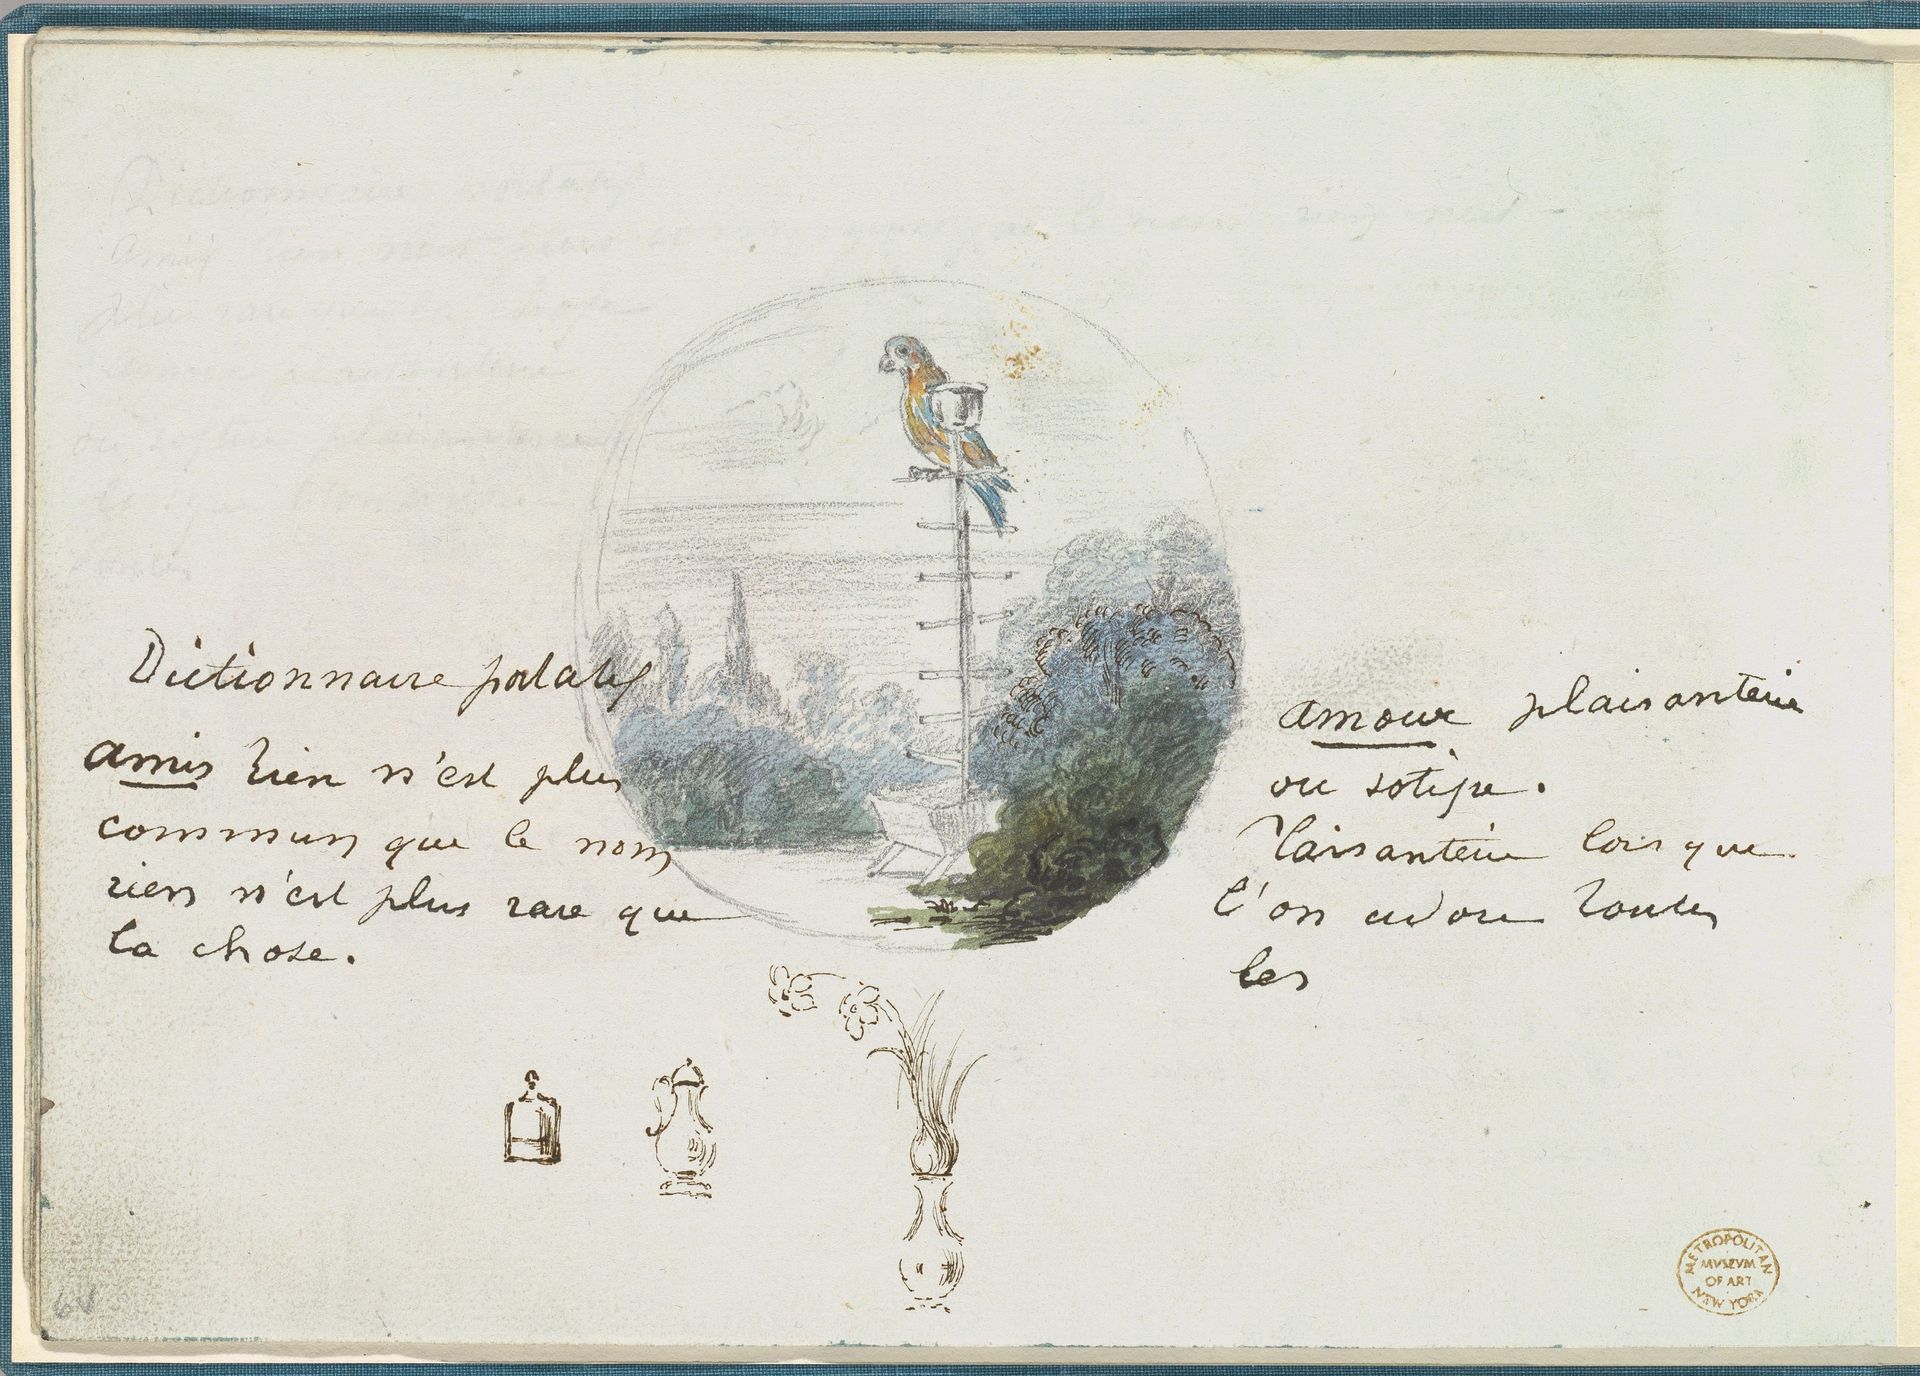 Dictionnaire portatif
amis rien n'est plus
commun que le nom
rien n'est plus rare que
la chose.
amour plaisanterie
ou sotise.
Plaisanterie lorsque
l'on adore toutes
les
METROPOLITAN
MVSEVM
OF ART
NEW YORK
6V